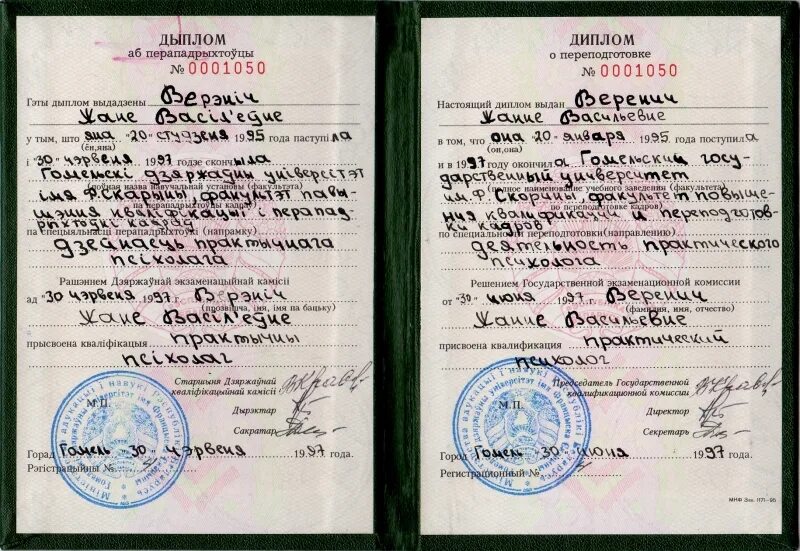 ДЫПЛОМ
аб перападрыхтоўцы
№ 0001050
Гэты дыплом выдадзены Верэніч
Жане Васіл'еўне
у тым, што яна "20" студзеня 1995 года паступіла
(ён,яна)
і "30" чэрвеня 1997 годзе скончыла
Гомельскі дзяржаўны універсітэт
(поўная назва навучальнай установы (факультэта)
імя Ф.Скарыны факультэт павы-
па перападрыхтоўцы кадраў)
шэння кваліфікацыі і перапад-
рыхтоўкі кадраў
па спецыяльнасці перападрыхтоўкі (напрамку)
дзейнасць практычнага
псіхолага
Рашэннем Дзяржаўнай экзаменацыйнай камісіі
ад "30" чэрвеня 1997 г. Верэніч
(прозвішча, імя, імя па бацьку)
Жане Васіл'еўне
прысвоена кваліфікацыя практычны
псіхолаг
Старшыня Дзяржаўнай
кваліфікацыйнай камісіі
М.П.
Дырэктар
Сакратар
Горад Гомель "30" чэрвеня 1997 года.
Рэгістрацыйны №
ДИПЛОМ
о переподготовке
№ 0001050
Настоящий диплом выдан Веренич
Жанне Васильевне
в том, что она "20" января 1995 года поступила
(он,она)
и в 1997 году окончила Гомельский госу-
дарственный университет
(полное наименование учебного заведения (факультета)
им.Ф.Скорины факультет повыше-
по переподготовке кадров)
ния квалификации и переподготов-
ки кадров
по специальности переподготовки(направлению)
деятельность практического
психолога
Решением Государственной экзаменационной комиссии
от "30" июня 1997 Веренич
(фамилия, имя, отчество)
Жанне Васильевне
присвоена квалификация практический
психолог
Председатель Государственной
квалификационной комиссии
М.П.
Директор
Секретарь
Город Гомель "30" июня 1997 года.
Регистрационный №